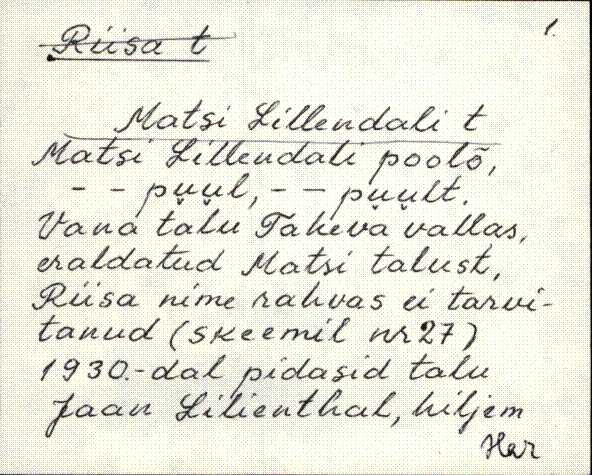 1.
Riisa t
Matsi Lillendali t
Matsi Lillendali poolõ,
- - pu̬u̬l, - - pu̬u̬lt.
Vana talu Taheva vallas,
eraldatud Matsi talust,
Riisa nime rahvas ei tarvi-
tanud (skeemil nr 27)
1930.-dal pidasid talu
Jaan Lilienthal, hiljem
Har